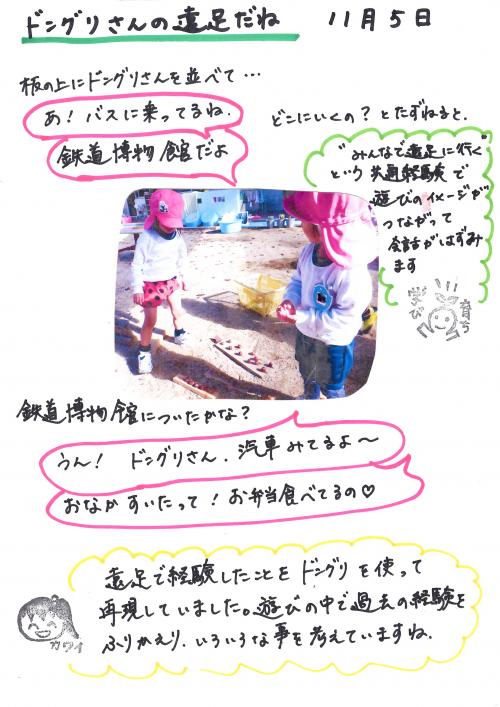 ドングリさんの遠足だね 11月5日
板の上にドングリさんを並べて…
あ！バスに乗ってるね.
鉄道博物館だよ
どこにいくの？とたずねると.
"みんなで遠足に行く"
という共通経験で
遊びのイメージが
つながって
会話がはずみ
ます
学び 育ち
鉄道博物館についたかな？
うん！ ドングリさん.汽車みてるよ〜
おなかすいたって！お弁当食べてるの♡
遠足で経験したことをドングリを使って
再現していました。遊びの中で過去の経験を
ふりかえり.いろいろな事を考えていますね.
カワイ